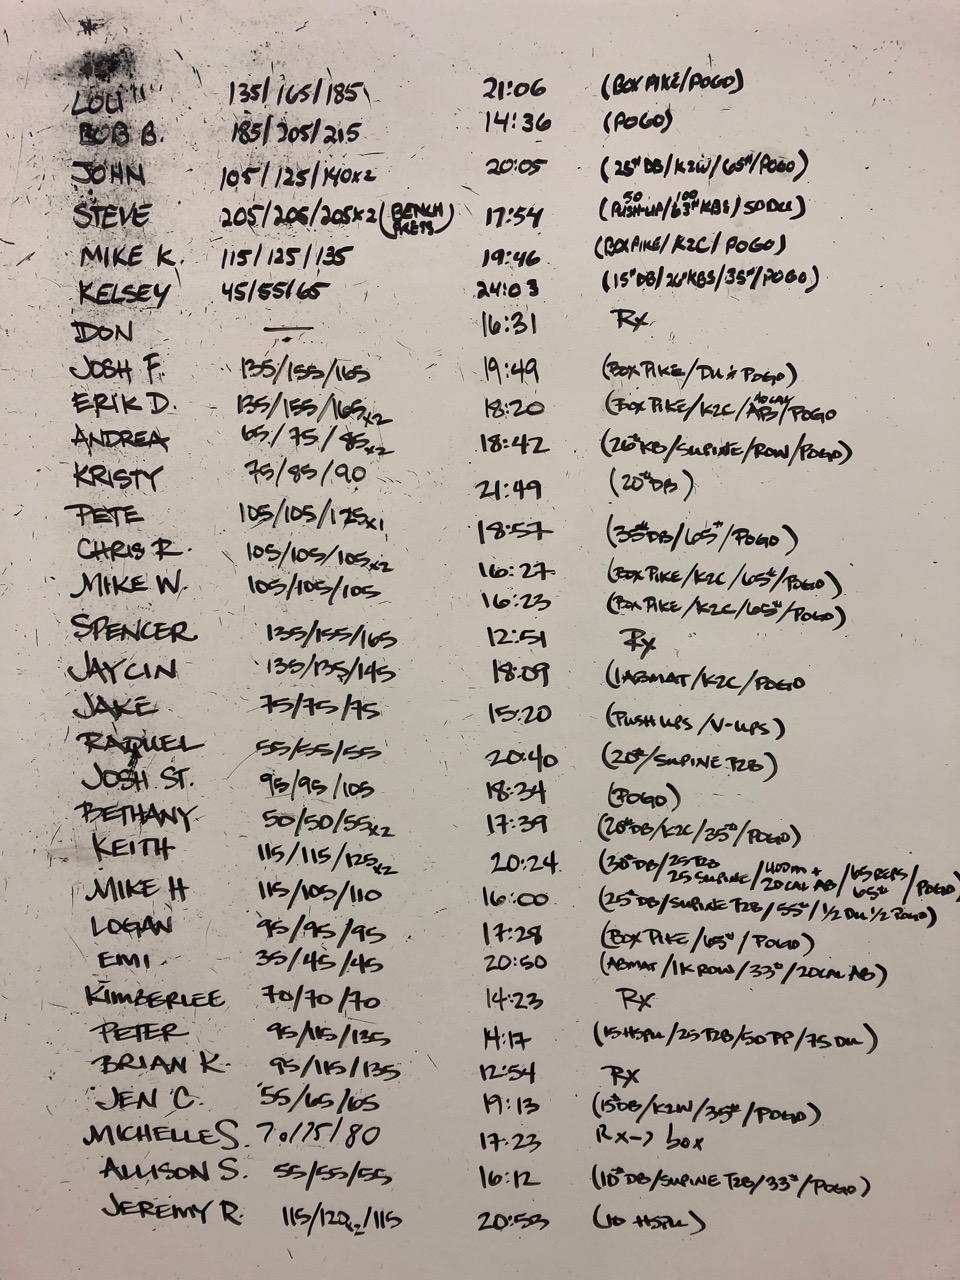 LOU 135/165/185 21:06 (BOX PIKE/POGO)
BOB B. 185/205/215 14:36 (POGO)
JOHN 105/125/140x2 20:05 (25# DB/K2W/65#/POGO)
STEVE 205/205/205x2 (BENCH PRESS) 17:54 (50 PUSH-UP/100 63# KBS/50 DU)
MIKE K. 115/125/135 19:46 (BOX PIKE/K2C/POGO)
KELSEY 45/55/65 24:03 (15# DB/26# KBS/35#/POGO)
DON — 16:31 Rx
JOSH F. 135/155/165 19:49 (BOX PIKE/DU & POGO)
ERIK D. 135/155/165x2 18:20 (BOX PIKE/K2C/40 CAL AB/POGO
ANDREA 65/75/85x2 18:42 (26# KB/SUPINE/ROW/POGO)
KRISTY 75/85/90 21:49 (20# DB)
PETE 105/105/125x1 18:57 (35# DB/65#/POGO)
CHRIS R. 105/105/105x2 16:27 (BOX PIKE/K2C/65#/POGO)
MIKE W. 105/105/105 16:23 (BOX PIKE/K2C/65#/POGO)
SPENCER 135/155/165 12:51 Rx
JAYCIN 135/135/145 18:09 (1 ABMAT/K2C/POGO
JAKE 75/75/75 15:20 (PUSH UPS/V-UPS)
RAQUEL 55/55/55 20:40 (20#/SUPINE T2B)
JOSH ST. 95/95/105 18:34 (POGO)
BETHANY 50/50/55x2 17:39 (20# DB/K2C/35#/POGO)
KEITH 115/115/125x2 20:24 (30# DB/25 T2B 25 SUPINE/400m + 20 CAL AB/65 REPS 65#/POGO)
MIKE H 115/105/110 16:00 (25# DB/SUPINE T2B/55#/1/2 DU 1/2 POGO)
LOGAN 95/95/95 17:28 (BOX PIKE/65#/POGO)
EMI 35/45/45 20:50 (ABMAT/1K ROW/33#/20 CAL AB)
KIMBERLEE 70/70/70 14:23 Rx
PETER 95/115/135 14:17 (15 HSPU/25 T2B/50 PP/75 DU)
BRIAN K. 95/115/135 12:54 Rx
JEN C. 55/65/65 19:13 (15# DB/K2W/35#/POGO)
MICHELLE S. 70/75/80 17:23 Rx -> box
ALLISON S. 55/55/55 16:12 (10# DB/SUPINE T2B/33#/POGO)
JEREMY R. 115/120x2/115 20:53 (10 HSPU)